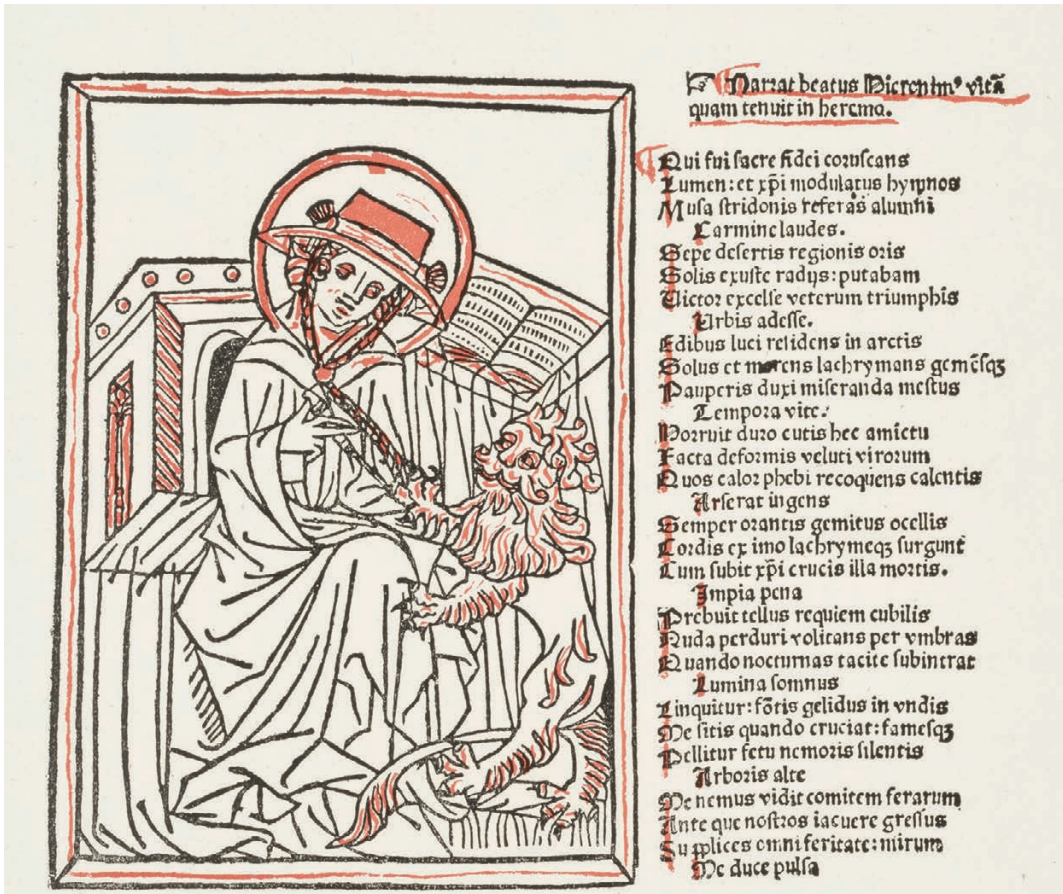 Narrat beatus Hieronimꝰ vitã
quam tenuit in heremo.
Qui fui sacre fidei coruscans
Lumen: et xp̃i modulatus hymnos
Musa stridonis referãs alumni
Carmine laudes.
Sepe desertis regionis oris
Solis exuste radijs: putabam
Victor excelse veterum triumphis
Urbis adesse.
Edibus luci residens in arctis
Solus et merens lachrymans gemẽsqꝫ
Pauperis duxi miseranda mestus
Tempora vite:
Horruit duro cutis hec amictu
Facta deformis veluti virorum
Quos calor phebi recoquens calentis
Arserat ingens
Semper orantis gemitus ocellis
Cordis ex imo lachrymeqꝫ surgunt
Cum subit xp̃i crucis illa mortis.
Impia pena
Prebuit tellus requiem cubilis
Nuda perduri volitans per vmbras
Quando nocturnas tacite subintrat
Lumina somnus
Linquitur: fõtis gelidus in vndis
Me sitis quando cruciat: famesqꝫ
Pellitur fetu nemoris silentis
Arboris alte
Me nemus vidit comitem ferarum
Ante que nostros iacuere gressus
Supplices omni feritate: mirum
Me duce pulsa